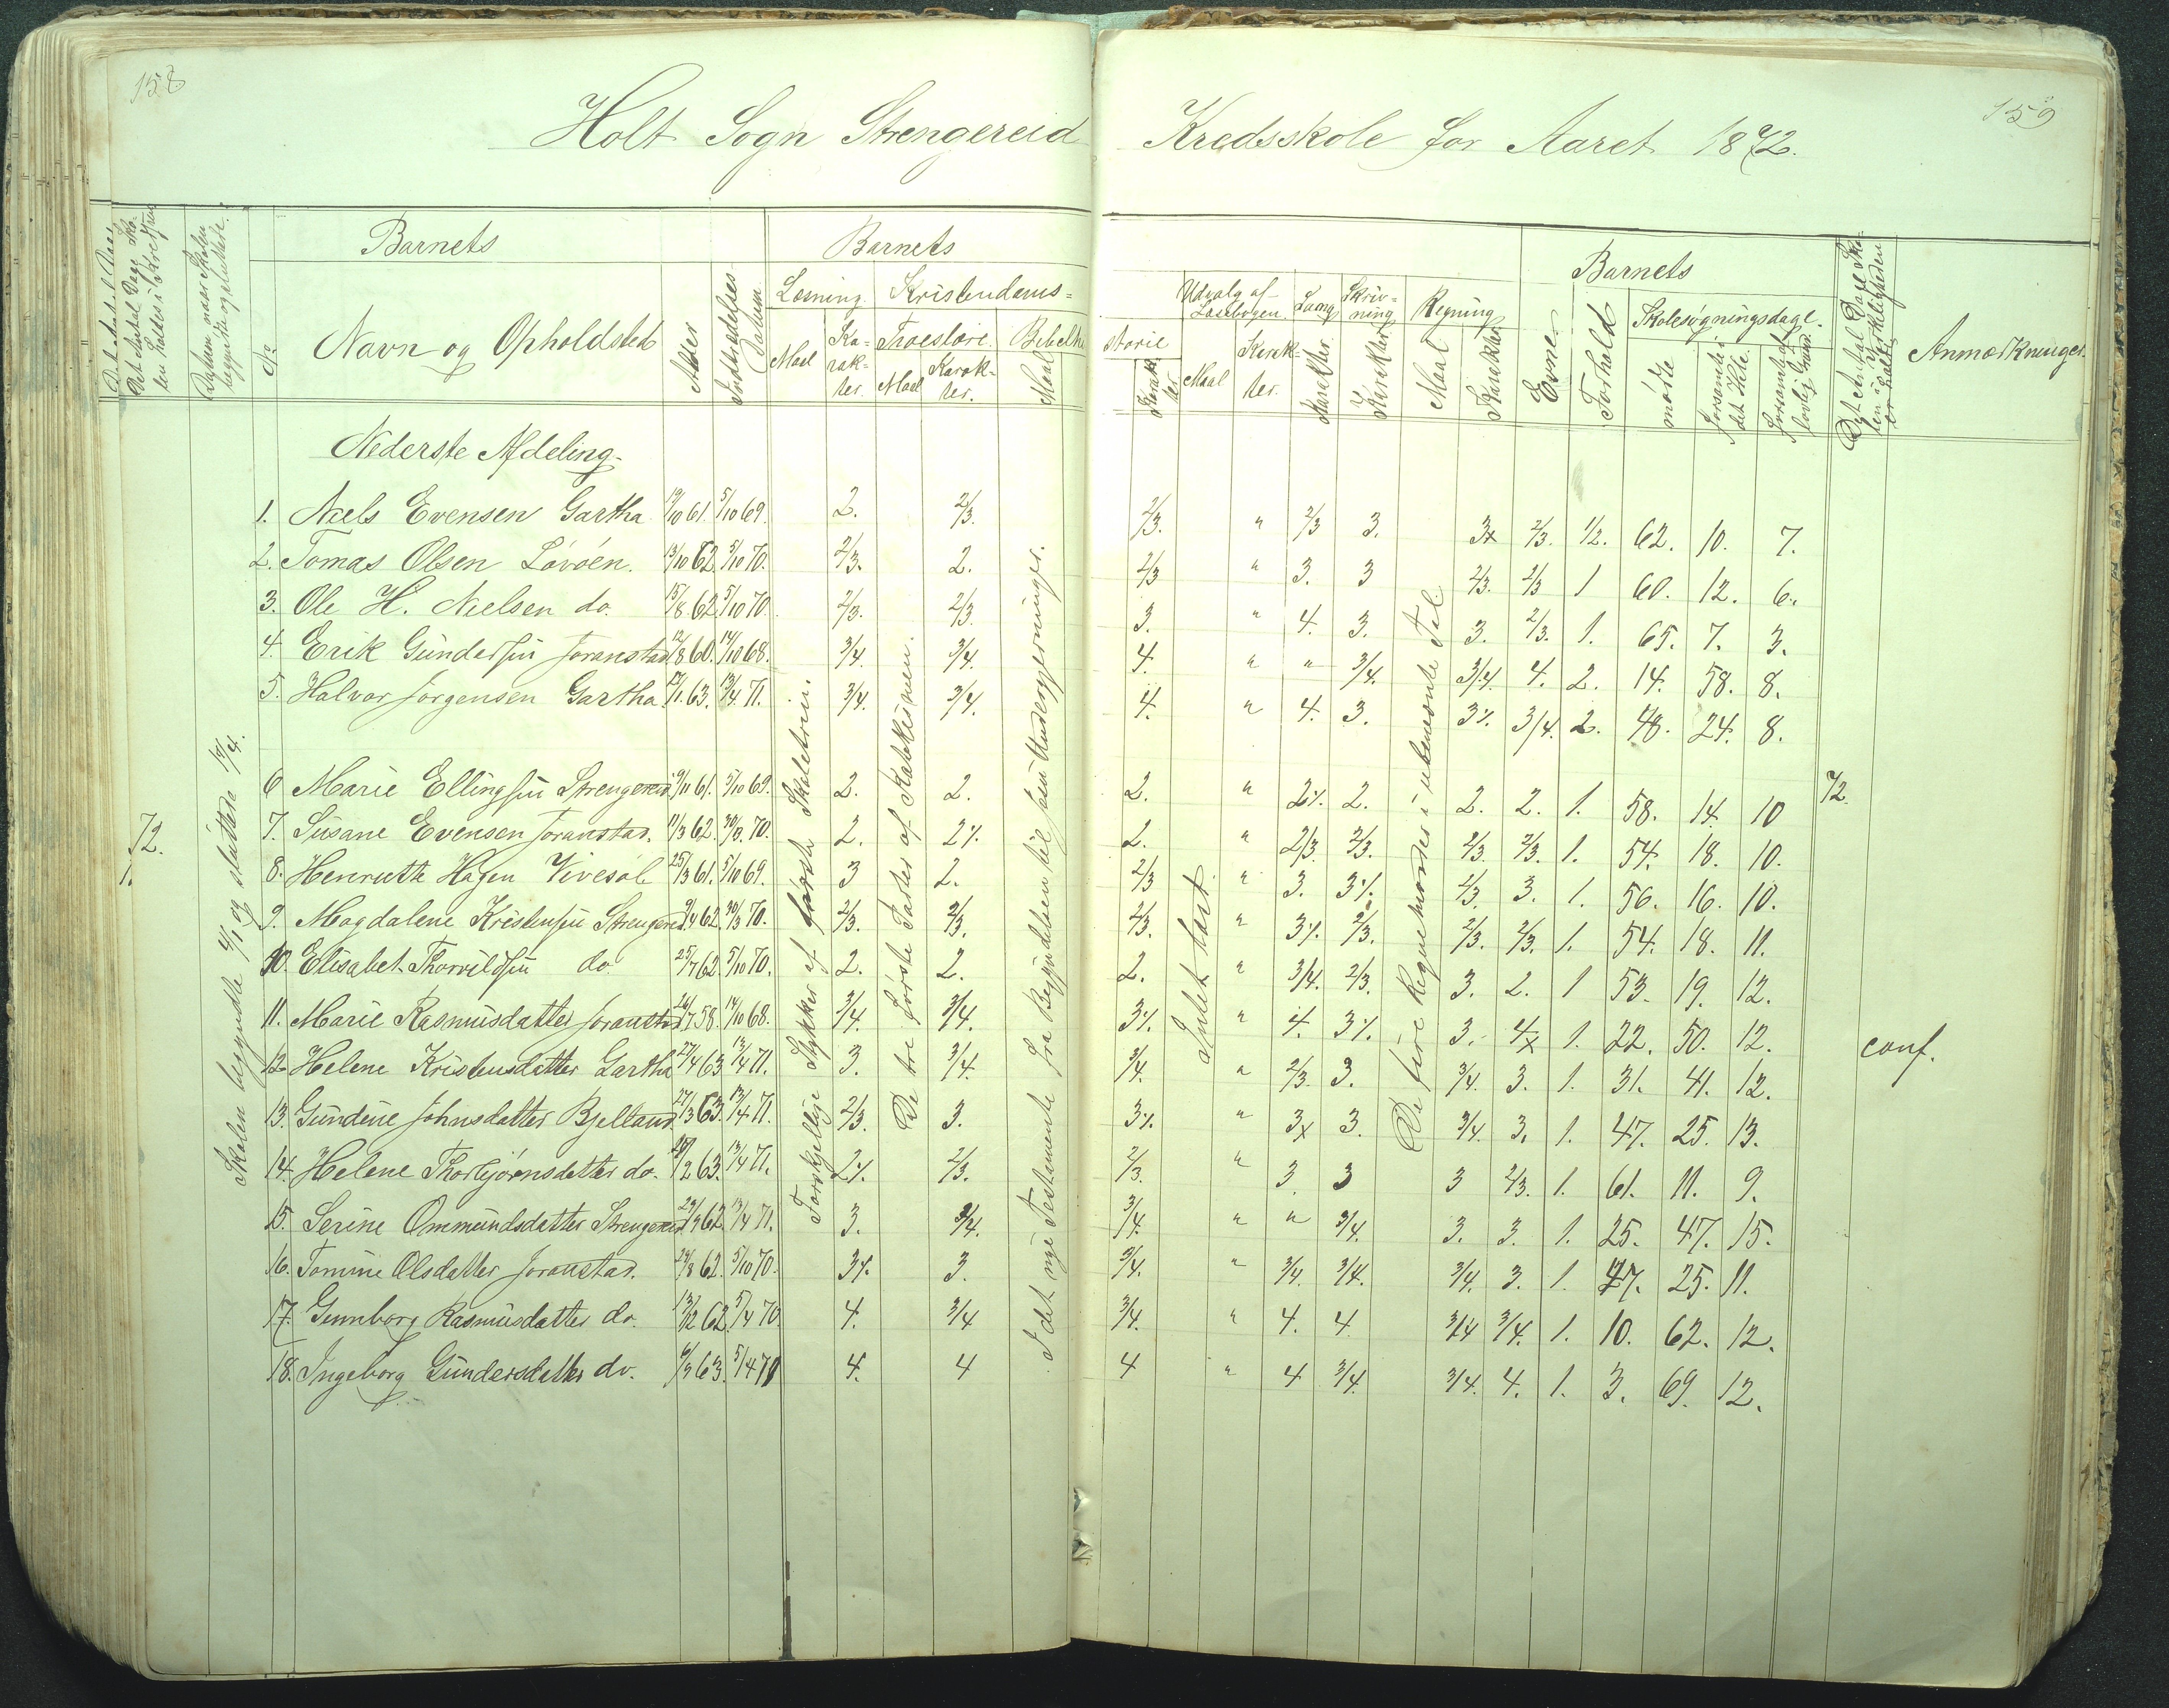 158
159
Holt Sogn Strengereid Kredsskole for Aaret 1872.
Barnets Barnets Barnets
Navn og Opholdsted
No
Alder
Indtrædelses Datum
Læsning. Kristendoms=
Maal Ka-rak-ter. Troeslære. Bibelhi
Maal Karak-ter. Maal
storie Udvalg af Læsebogen. Sang Skriv=ning Regning
Karak-ter. Maal Karak-ter. Karakter. Karakter Maal Karakter
Evner Forhold Skolesøgningsdage.
mødte forsømte det Hele. forsømte af lovlig Grund
Anmærkninger.
Nederste Afdeling.
1. Niels Evensen Gartha 19/10 61. 5/10 69. 2. 2/3. 2/3. " 2/3 3. 3x 2/3. 1/2. 62. 10. 7.
2. Tomas Olsen Løvøen. 13/10 62 5/10 70. 2/3. 2. 2/3 " 3. 3 2/3. 2/3 1 60. 12. 6.
3. Ole H. Nielsen do. 15/8 62 5/10 70. 2/3. 2/3. 3. " 4. 3. 3. 2/3. 1. 65. 7. 3.
4. Erik Gundersen Joranstad 12/8 60. 14/10 68. 3/4. 3/4. 4. " " 3/4. 3/4. 4. 2. 14. 58. 8.
5. Halvor Jørgensen Gartha. 63. 13/4 71. 3/4. 3/4. 4. " 4. 3. 3% 3/4. 2. 48. 24. 8.
6 Marie Ellingsen Strengereid 9/11 61. 5/10 69. 2. 2. 2. " 2%. 2. 2. 2. 1. 58. 14. 10 72.
72. 7. Susane Evensen Joranstad. 11/3 62. 30/3. 70. 2. 2% 2. " 2/3. 2/3. 2/3. 2/3. 1. 54. 18. 10.
1. 8. Henriette Hagen Vivesøl 25/3 61. 5/10 69. 3 2. 2/3 " 3. 3%. 2/3. 3. 1. 56. 16. 10.
9. Magdalene Kristensen Strengereid 9/4 62. 30/3 70. 2/3. 2/3. 2/3. " 3%. 2/3. 2/3. 2/3. 1. 54. 18. 11.
10. Elisabet Thorvildsen do. 25/7 62. 5/10 70. 2. 2. 2. " 3/4. 2/3. 3. 2. 1 53. 19. 12.
11. Marie Rasmusdatter Joranstad 26/7 58. 14/10 68. 3/4. 3/4. 3%. " 4. 3%. 3. 4x 1. 22. 50. 12. conf.
12. Helene Kristensdatter Gartha 27/4 63 13/4 71. 3. 3/4. 3/4. " 2/3. 3. 3/4. 3. 1. 31. 41. 12.
13. Gundine Johnsdatter Bjelland 27/3 63. 13/4 71. 2/3. 3. 3%. " 3x 3. 3/4. 3. 1. 47. 25. 13.
14. Helene Thorbjørnsdatter do. 63. 13/4 71. 2%. 2/3. 2/3. " 3. 3 3 2/3. 1. 61. 11. 9.
15. Serine Ommundsdatter Strengereid 29/9 62 13/4 71. 3. 3/4. 3/4. " " 3/4. 3. 3. 1. 25. 47. 15.
16. Tomine Olsdatter Joranstad. 24/8 62. 5/10 70. 3%. 3. 3/4. " 3/4. 3/4. 3/4. 3. 1. 47. 25. 11.
17. Gunnborg Rasmusdatter do. 13/12 62. 5/4 70. 4. 3/4 3/4. " 4. 4 3/4 3/4. 1. 10. 62. 12.
18. Ingeborg Gundersdatter do. 6/9 63. 5/4 71 4. 4 4 " 4 3/4. 3/4. 4. 1. 3. 69. 12.
Skolen begyndte 4/1 og sluttede 19/4.
Forskjellige Stykker af første Skoletrin.
De tre første Parter af Katekismen.
I det nye Testamente fra Begyndelsen til Jesu Undergjerninger.
Intet læst
De fire Regnemaader i ubenevnte Tal